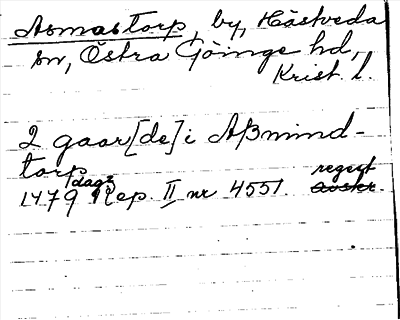 Asmastorp, by, Hästveda
sn, Östra Göinge hd,
Krist. l.
2 gaar[de] i Aßmind-
torp
1479 dags Rep. II nr 4551. regest